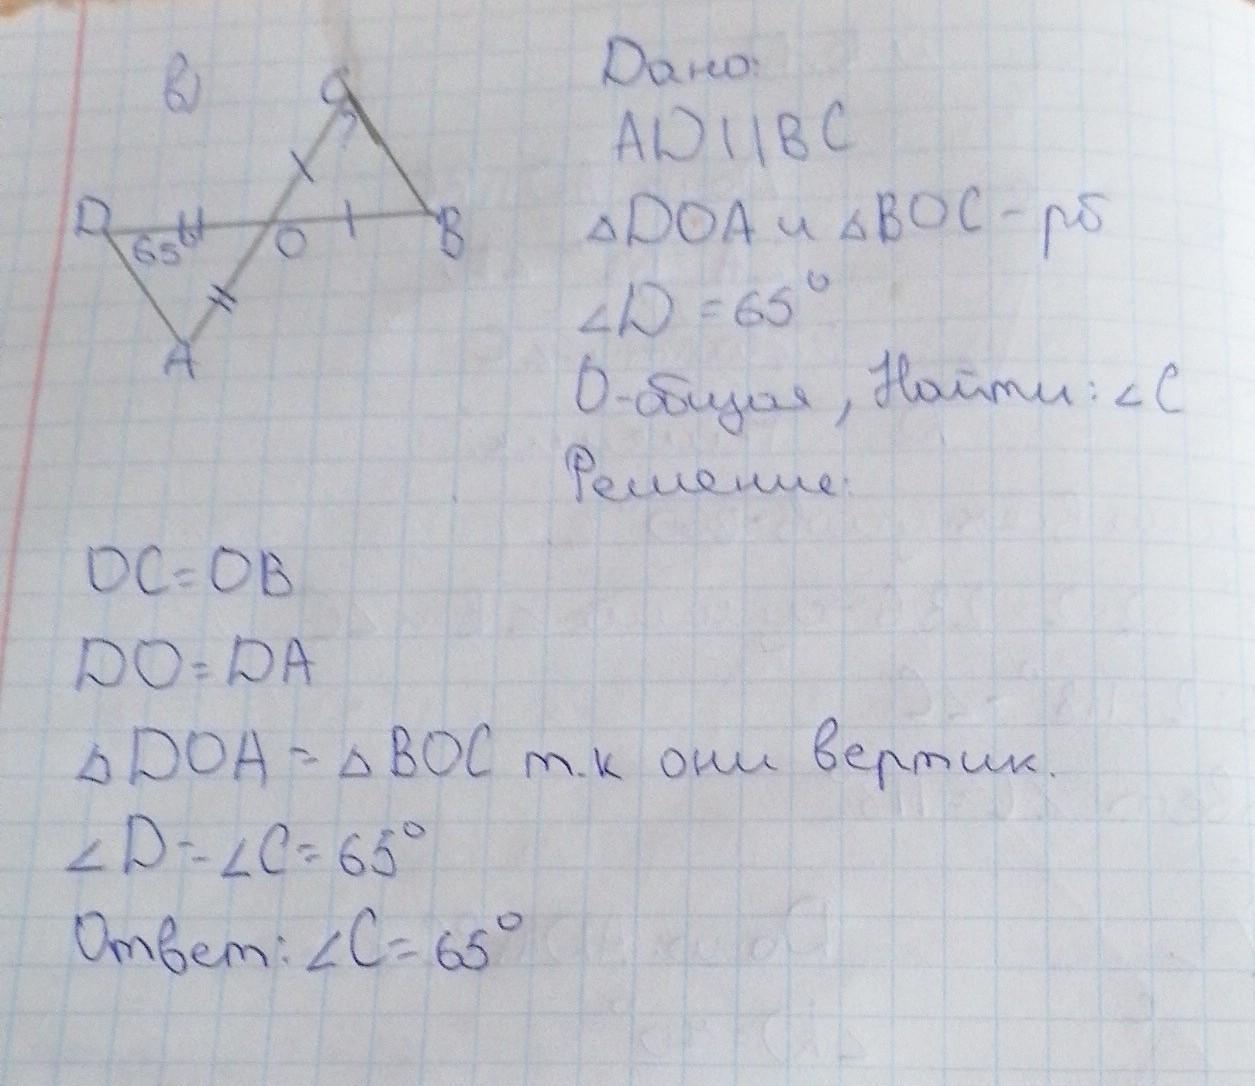 в)
C
D
65°
O
B
A
Дано:
AD||BC
△DOA и △BOC - рб
∠D = 65°
O-общая, Найти: ∠C
Решение:
OC=OB
DO=DA
△DOA = △BOC т.к они вертик.
∠D=∠C=65°
Ответ: ∠C=65°